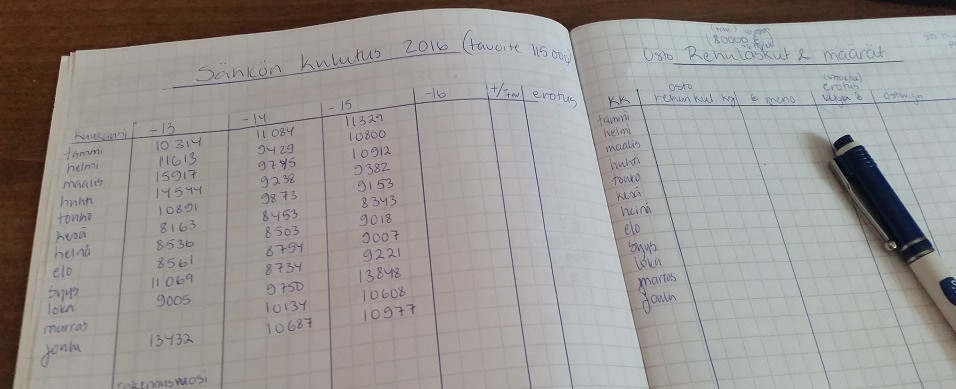 Sähkön kulutus 2016 (tavoite 115 000)
kuukausi -13 -14 -15 -16 +/- erotus
tammi 10314 11084 11329
helmi 11613 9429 10800
maalis 15917 9745 10912
huhti 14544 9238 9382
touko 10891 9873 9153
kesä 8163 8453 8343
heinä 8536 8503 9018
elo 8561 8794 9007
syys 11069 8734 9221
loka 9005 9750 13848
marras 10134 10608
joulu 13432 10687 10977
rakennusvuosi
(80000
Osto Rehulaskut & määrät
KK osto rehun kul kg € meno erotus
tammi
helmi
maalis
huhti
touko
kesä
heinä
elo
syys
loka
marras
joulu